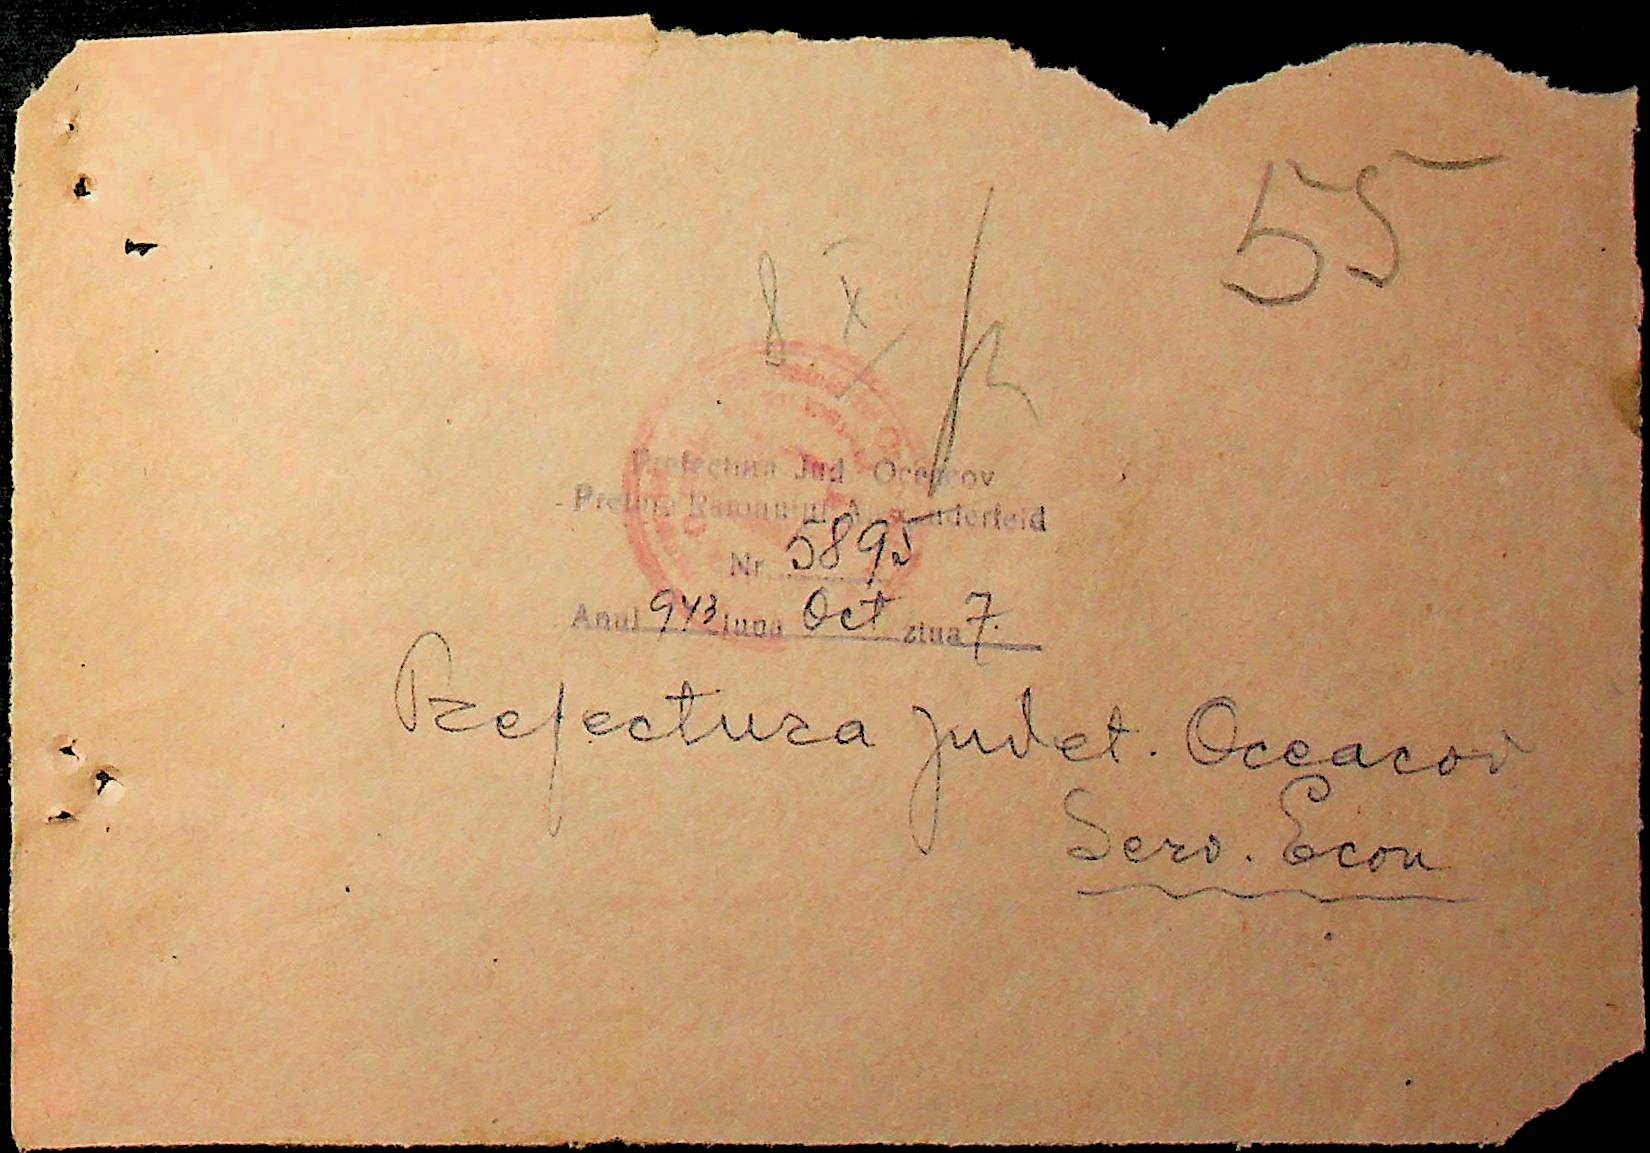 55
8 X
Prefectura Jud Oceacov
Pretura Raionului Alexanderfeld
Nr. 5895
Anul 943 luna Oct ziua 7.
Prefectura Judet. Oceacov
Serv. Econ